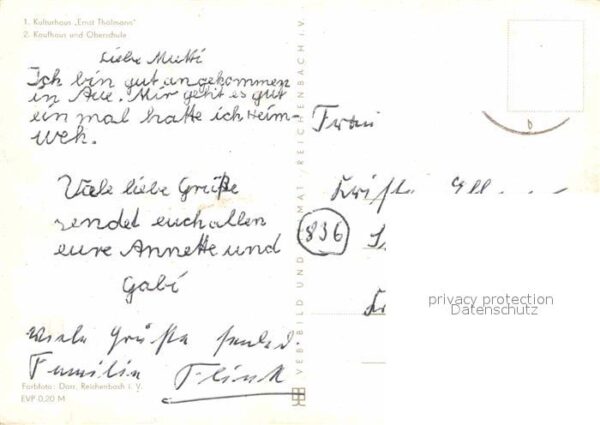 1. Kulturhaus „Ernst Thälmann"
2. Kaufhaus und Oberschule
Liebe Mutti
Ich bin gut angekommen
in Aue. Mir geht es gut
ein mal hatte ich Heim-
weh.
Viele liebe Grüße
sendet euch allen
eure Annette und
Gabi
viele Grüße sendet
Familie Flink
Farbfoto: Darr, Reichenbach i. V.
EVP 0,20 M
VEB BILD UND HEIMAT REICHENBACH i. V.
Frau
836
privacy protection
Datenschutz